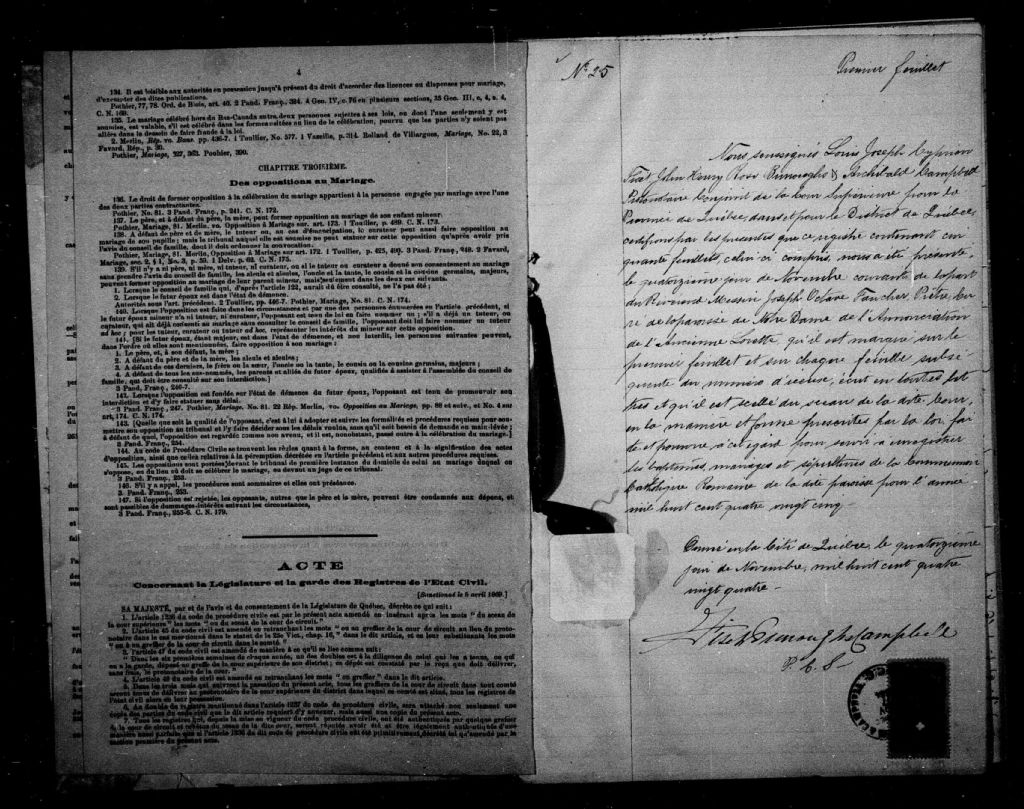 4
134. Il est loisible aux autorités en possession jusqu'à présent du droit d'accorder des licences ou dispenses pour mariage,
d'exempter des dites publications.
Pothier, 77, 78. Ord. de Blois, art. 40. 2 Pand. Franç., 324. 4 Geo. IV, c. 76 en plusieurs sections, 35 Geo. III, c, 4, s. 4,
C. N. 169.
135. Le mariage célébré hors du Bas-Canada entre deux personnes sujettes à ses lois, ou dont l'une seulement y est
soumise, est valable, s'il est célébré dans les formes usitées au lieu de la célébration, pourvu que les parties n'y soient pas
allées dans le dessein de faire fraude à la loi.
2. Merlin, Rép. vo. Bans. pp. 436-7. 1 Toullier, No. 577. 1 Vazeille, p. 314. Rolland de Villargues, Mariage, No. 22, 3
Favard, Rép., p. 30.
Pothier, Mariage, 327, 363. Pouhier, 390.
CHAPITRE TROISIÈME.
Des oppositions au Mariage.
136. Le droit de former opposition à la célébration du mariage appartient à la personne engagée par mariage avec l'une
des deux parties contractantes.
Pothier, No. 81. 3 Pand. Franç., p. 241. C. N. 172.
137. Le père, et à défaut du père, la mère, peut former opposition au mariage de son enfant mineur.
Pothier, Mariage, 81. Merlin, vo. Opposition à Mariage sur art. 173. 1 Toullier, p. 489. C. N. 173.
138. A défaut de père et de mère, le tuteur ou, en cas d'émancipation, le curateur peut aussi faire opposition au
mariage de son pupille; mais le tribunal auquel elle est soumise ne peut statuer sur cette opposition qu'après avoir pris
l'avis du conseil de famille, dont il doit ordonner la convocation.
Pothier, Mariage, 81. Merlin, Opposition à Mariage sur art. 172. 1 Toullier, p. 425, 490. 3 Pand. Franç., 248. 2 Favard,
Mariage, sec. 2, § 1, No. 3, p. 30. 1 Delv., p. 62. C. N. 175.
139. S'il n'y a ni père, ni mère, ni tuteur, ni curateur, ou si le tuteur ou curateur a donné son consentement au mariage
sans prendre l'avis du conseil de famille, les aïeuls et aïeules, l'oncle et la tante, le cousin et la cousine germains, majeurs,
peuvent former opposition au mariage de leur parent mineur, mais seulement dans les deux cas suivants.
1. Lorsque le conseil de famille qui, d'après l'article 122, aurait dû être consulté, ne l'a pas été;
2. Lorsque le futur époux est dans l'état de démence.
Autorités sous l'art. précédent. 2 Toullier, pp. 446-7. Pothier, Mariage, No. 81. C. N. 174.
140. Lorsque l'opposition est faite dans les circonstances et par une des personnes énumérées en l'article précédent, si
le futur époux mineur n'a ni tuteur, ni curateur, l'opposant est tenu de lui en faire nommer un; s'il a déjà un tuteur, ou
curateur, qui ait déjà consenti au mariage sans consulter le conseil de famille, l'opposant doit lui faire nommer un tuteur
ad hoc; pour les tuteur, curateur ou tuteur ad hoc, représenter les intérêts du mineur sur cette opposition.
141. [Si le futur époux, étant majeur, est dans l'état de démence, et non interdit, les personnes suivantes peuvent,
dans l'ordre où elles sont mentionnées, faire opposition à son mariage:
1. Le père, et, à son défaut, la mère;
2. A défaut du père et de la mère, les aïeuls et aïeules;
3. A défaut de ces derniers, le frère ou la sœur, l'oncle ou la tante, le cousin ou la cousine germains, majeurs;
4. A défaut de tous les sus-nommés, les parents et alliés du futur époux, qualifiés à assister à l'assemblée du conseil de
famille, qui doit être consulté sur son interdiction.]
3 Pand. Franç., 246-7.
142. Lorsque l'opposition est fondée sur l'état de démence du futur époux, l'opposant est tenu de promouvoir son
interdiction et d'y faire statuer sans délai.
3 Pand. Franç., 247. Pothier, Mariage, No. 81. 22 Rép. Merlin, vo. Opposition au Mariage, pp 88 et suiv., et No. 4 sur
art, 174. C. N. 174.
143. [Quelle que soit la qualité de l'opposant, c'est à lui à adopter et suivre les formalités et procédures requises pour soumettre
son opposition au tribunal et l'y faire décider sous les délais voulus, sans qu'il soit besoin de demande en main-levée;
à défaut de quoi, l'opposition est regardée comme non avenu, et il est, nonobstant, passé outre à la célébration du mariage.]
3 Pand. Franç., 254.
144. Au code de Procédure Civile se trouvent les règles quant à la forme, au contenu et à la signification des actes
d'opposition, ainsi que celles relatives à la péremption décrétée en l'article précédent et aux autres procédures requises.
145. Les oppositions sont portées devant le tribunal de première instance du domicile de celui au mariage duquel on
s'oppose, ou du lieu où doit se célébrer le mariage, ou devant un juge de ce tribunal.
3 Pand. Franç., 253.
146. S'il y a appel, les procédures sont sommaires et elles ont préséance.
3 Pand. Franç., 253.
147. Si l'opposition est rejetée, les opposants, autres que le père et la mère, peuvent être condamnés aux dépens, et
sont passibles de dommages-intérêts suivant les circonstances,
3 Pand. Franç., 255-6. C. N. 179.
ACTE
Concernant la Législature et la garde des Registres de l'Etat Civil.
[Sanctionné le 5 avril 1869.]
SA MAJESTÉ, par et de l'avis et du consentement de la Législature de Québec, décrète ce qui suit:
1. L'article 1236 du code de procédure civile est par le présent acte amendé en insérant après les mots " du sceau de
la cour supérieure " les mots " ou du sceau de la cour de circuit."
2. L'article 45 du code civil est amendé en retranchant les mots " ou au greffier de la cour de circuit au lieu du protonotaire
dans le cas mentionné dans le statut de la 25e Vict., chap. 16, " dans le dit article, et en leur substituant les mots
" ou à un greffier de la cour de circuit dans le comté "
3. l'article 47 du code civil est amendé de manière à ce qu'il se lise comme suit:
" Dans les six premières semaines de chaque année, un des doubles est à la diligence de celui qui les a tenus, ou qui
en a la garde, déposé au greffe de la cour supérieure de son district; ce dépôt est constaté par le reçu que doit délivrer,
sans frais, le protonotaire de la cour."
4. L'article 48 du code civil est amendé en retranchant les mots " ou greffier " dans le dit article.
5. Dans les trois mois qui suivront la passation du présent acte, tous les greffiers de la cour de circuit dans tout comté
seront tenus de délivrer au protonotaire de la cour supérieure du district dans lequel ce comté est situé, tous les registres de
l'état civil alors en leur possession.
6. Au double du registre mentionné dans l'article 1237 du code de procédure civile, sera attaché non seulement une
copie des parties du code civil que le dit article requiert d'y annexer, mais aussi une copie du présent acte.
7. Tous les registres qui, depuis la mise en vigueur du code procédure civile, ont été authentiqués par quelque greffier
de la cour de circuit et revêtus du sceau de la dite cour, seront réputés avoir été et être légalement authentiqués d'une
manière aussi parfaite que si l'article 1236 du dit code de procédure civile eût été primitivement décrété tel qu'amendé par la
section première du présent acte.
No. 25
Premier feuillet
Nous soussignés Louis Joseph Cyprien
Fiset John Henry Ross Burroughs & Archibald Campbell
Protonotaire Conjoint de la Cour Supérieure pour la
Province de Québec, dans et pour le District de Québec,
certifions par les présentes que ce registre contenant cin
quante feuillets, celui-ci compris, nous a été présenté,
le quatorzième jour de Novembre courante de la part
du Révérend Messire Joseph Octave Faucher Prêtre Cu
ré de la paroisse de Notre Dame de l'Annonciation
de l'Ancienne Lorette, qu'il est marqué sur le
premier feuillet et sur chaque feuille subsé
quente du numéro d'icelui, écrit en toutes let
tres et qu'il est scellé du sceau de la dite Cour,
en la manière et forme prescrites par la loi fai
te et pourvue à cet égard pour servir à enregistrer
les baptêmes, mariages et sépultures de la Communion
Catholique Romaine de la dite paroisse pour l'année
mil huit cent quatre vingt cinq.
Donné en la Cité de Québec, le quatorzième
jour de Novembre, mil huit cent quatre
vingt quatre.
Fiset Burroughs Campbell
P. C. S.